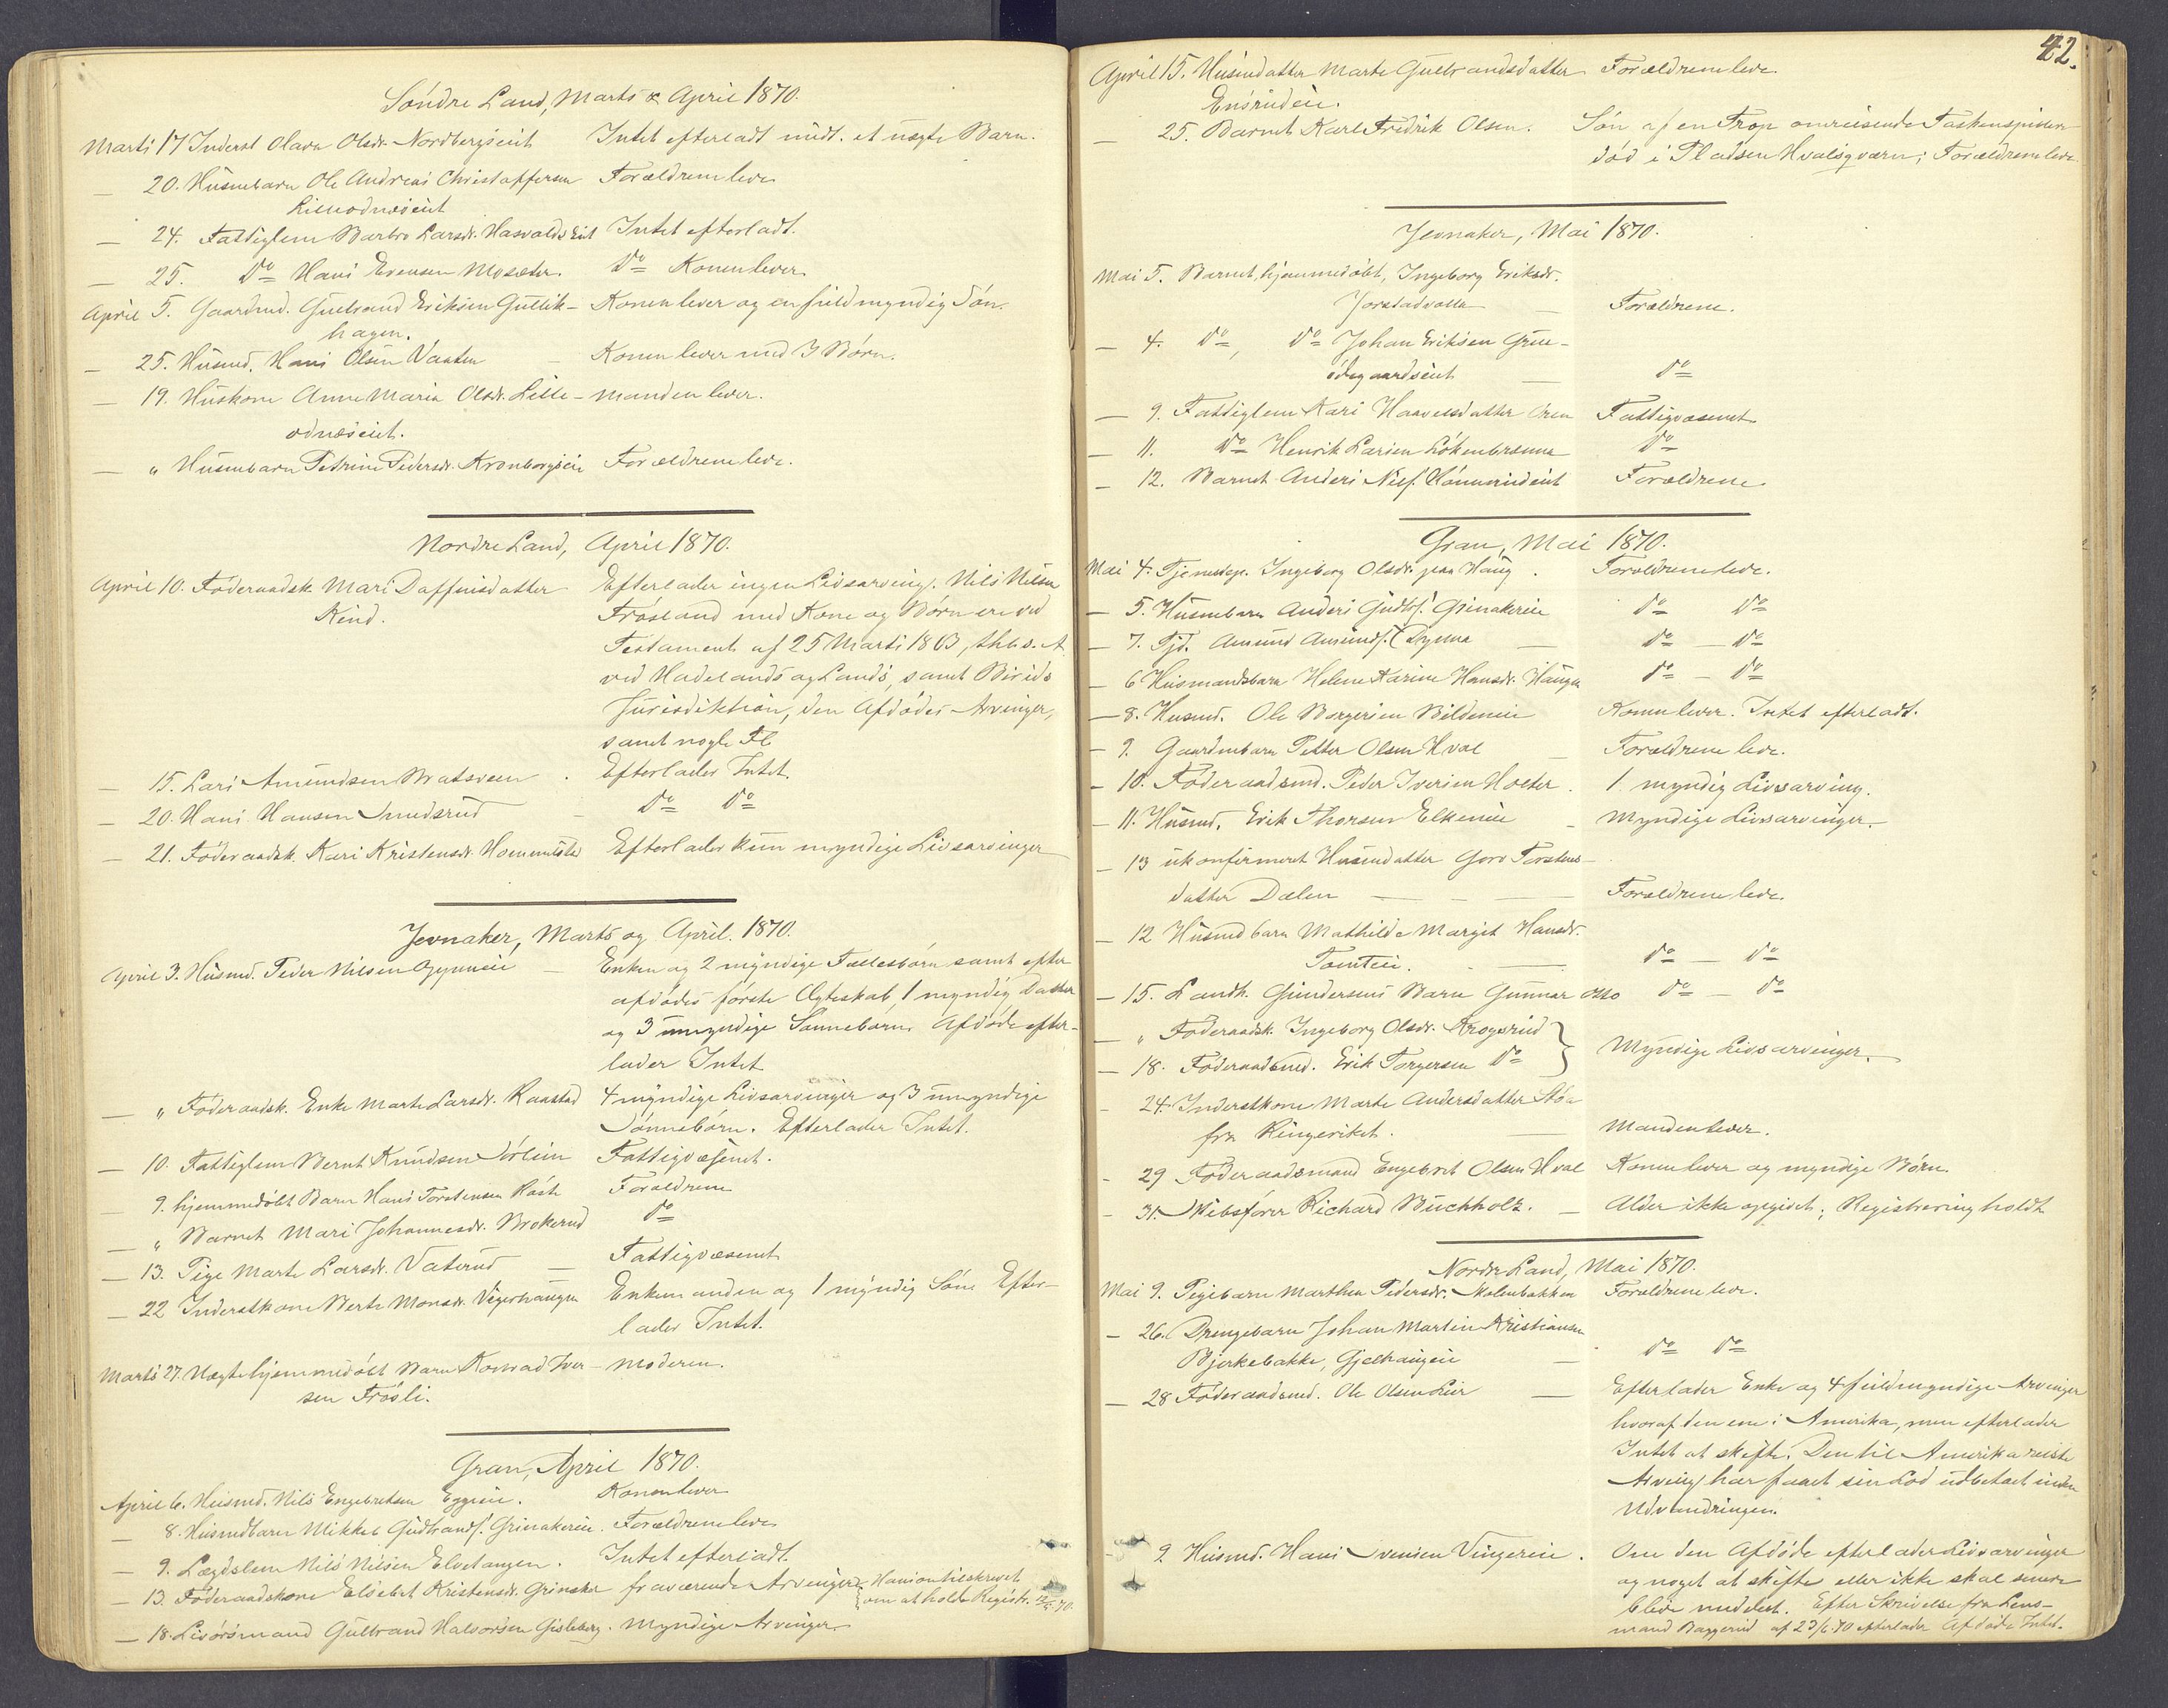 Søndre Land, Marts & April 1870.
Marts 17 Inderst Olava Olsdr. Nordbergseiet Intet efterladt undt. et uægte Barn.
— 20. Husmbarn Ole Andreas Christoffersen Forældrene leve
Lilleodnæseiet
— 24. Fattiglem Barbro Larsdr. Hasvoldseiet Intet efterladt.
— 25. Do Hans Evensen Mosæter. Do Konen lever
April 5. Gaardmd. Gulbrand Eriksen Gullik- Konen lever og en fuldmyndig Søn.
hagen.
— 25. Husmd. Hans Olsen Vaaten — Konen lever med 3 Børn.
— 19. Huskone Anne Maria Olsdr. Lille- Manden lever.
odnæseiet.
— „ Husmbarn Petrine Pedersdr. Kronborgseie Forældrene leve.
Nordre Land, April 1870.
April 10. Føderaadsk. Mari Daffinsdatter Efterlader ingen Livsarving. Nils Nilsen
Kind. Frøsland med Kone og Børn ere ved
Testament af 25 Marts 1863, thgl. s. A.
ved Hadelands og Lands, samt Birids
Jurisdiktion, den Afdødes Arvinger,
samt nogle Fl
— 15. Lars Amundsen Bratsveen . Efterlader Intet.
— 20. Hans Hansen Smedsrud — Do Do
— 21. Føderaadsk. Kari Kristensdr. Hommelstad Efterlader kun myndige Livsarvinger
Jevnaker, Marts og April. 1870.
April 3. Husmd. Peder Nilsen Opperneie — Enken og 2 myndige Fællesbørn samt efter
afdødes første Ægteskab, 1 myndig Datter
og 3 umyndige Sønnebørn. Afdøde efter-
lader Intet
— „ Føderaadsk. Enke Marte Larsdr. Raastad 4 myndige Livsarvinger og 3 umyndige
Sønnebørn. Efterlader Intet.
— 10. Fattiglem Bernt Knudsen Sørlien Fattigvæsenet.
— 9. hjemmedøbt Barn Hans Torstensen Raste Forældrene
— „ Barnet Mari Johannesdr. Brokerud Do
— 13. Pige Marte Larsdr. Vaterud — Fattigvæsenet
— 22 Inderstkone Berte Monsdr. Vegerhaugen Enkemanden og 1 myndig Søn. Efter-
lader Intet.
Marts 27. Uægte hjemmedøbt Barn Konrad Iver- Moderen.
sen Frøsli.
Gran, April 1870.
April 6. Husmd. Nils Engebretsen Eggeeie. Konen lever
— 8. Husmdbarn Mikkel Gudbrands. Grinakereie. Forældrene leve
— 9. Lægdslem Nils Nilsen Elvetangen. Intet efterladt.
— 13. Føderaadskone Elsebet Kristensdr. Grinaker fraværende Arvinger. Hanson tilskrevet
om at holde Registr. 12/5 70.
— 18. Livørsmand Gulbrand Halvorsen Gisleberg. Myndige Arvinger.
42.
April 15. Husmdatter Marte Gulbrandsdatter Forældrene leve.
Ensrudeie.
— 25. Barnet Karl Fredrik Olsen. Søn af en Trop omreisende Taskenspillere
død i Pladsen Hvalsqværn; Forældrene leve.
Jevnaker, Mai 1870.
Mai 5. Barnet, hjemmedøbt, Ingeborg Eriksdr.
Jorstadvolla — Forældrene.
— 4. Do, Do Johan Eriksen Grue-
ødegaardseiet — Do
— 9. Fattiglem Kari Haavelsdatter Oren Fattigvæsenet
— 11. Do Henrik Larsen Løkenbrænna Do
— 12. Barnet Anders Nils. Hønnerudeiet Forældrene
Gran, Mai 1870.
Mai 4. Tjenestep. Ingeborg Olsdr. paa Haug. Forældrene leve.
— 5. Husmbarn Anders Gudbs. Grinakereie Do Do
— 7. Tjd. Amund Amunds. Dynna — Do — Do
— 6 Husmandsbarn Helene Karine Hansdr. Haugen Do — Do
— 8. Husmd. Ole Borgersen Bildeneie Konen lever. Intet efterladt.
— 9. Gaardmbarn Petter Olsen Hval — Forældrene leve.
— 10. Føderaadsmd. Peder Iversen Holter. 1 myndig Livsarving.
— 11. Husmd. Erik Thorsen Elkeneie — Myndige Livsarvinger.
— 13 ukonfirmeret Husmdatter Goro Torstens-
datter Dælen — — — Forældrene leve.
— 12 Husmdbarn Mathilde Marget Hansdr.
Tomteie. — Do — Do
— 15. Landh. Gundersens Barn Gunnar Otto Do — Do
— „ Føderaadsk. Ingeborg Olsdr. Krogsrud
— 18. Føderaadsmd. Erik Torgersen Do } Myndige Livsarvinger.
— 24. Inderstkone Marte Andersdatter Støa
fra Ringeriket. — Manden lever.
— 29 Føderaadsmand Engebret Olsen Hval Konen lever og myndige Børn.
— 31. Skibsfører Richard Buchholz. — Alder ikke opgivet; Registrering holdt
Nordre Land, Mai 1870.
Mai 9. Pigebarn Marthea Pedersdr. Skolenbakken Forældrene leve.
— 26. Drengebarn Johan Martin Kristiansen
Bjerkebakke, Gjelhaugeie — Do Do
— 28 Føderaadsmd. Ole Olsen Lier — Efterlader Enke og 4 fuldmyndige Arvinger
hvoraf den ene i Amerika, men efterlader
Intet at skifte. Den til Amerika reiste
Arving har faaet sin Lod udbetalt inden
Udvandringen.
— 9. Husmd. Hans Svensen Vingereie. Om den Afdøde efterlader Livsarvinger
og noget at skifte eller ikke skal senere
blive meddelt. Efter Skrivelse fra Lens-
mand Baggerud af 23/6 70 efterlader Afdøde Intet.